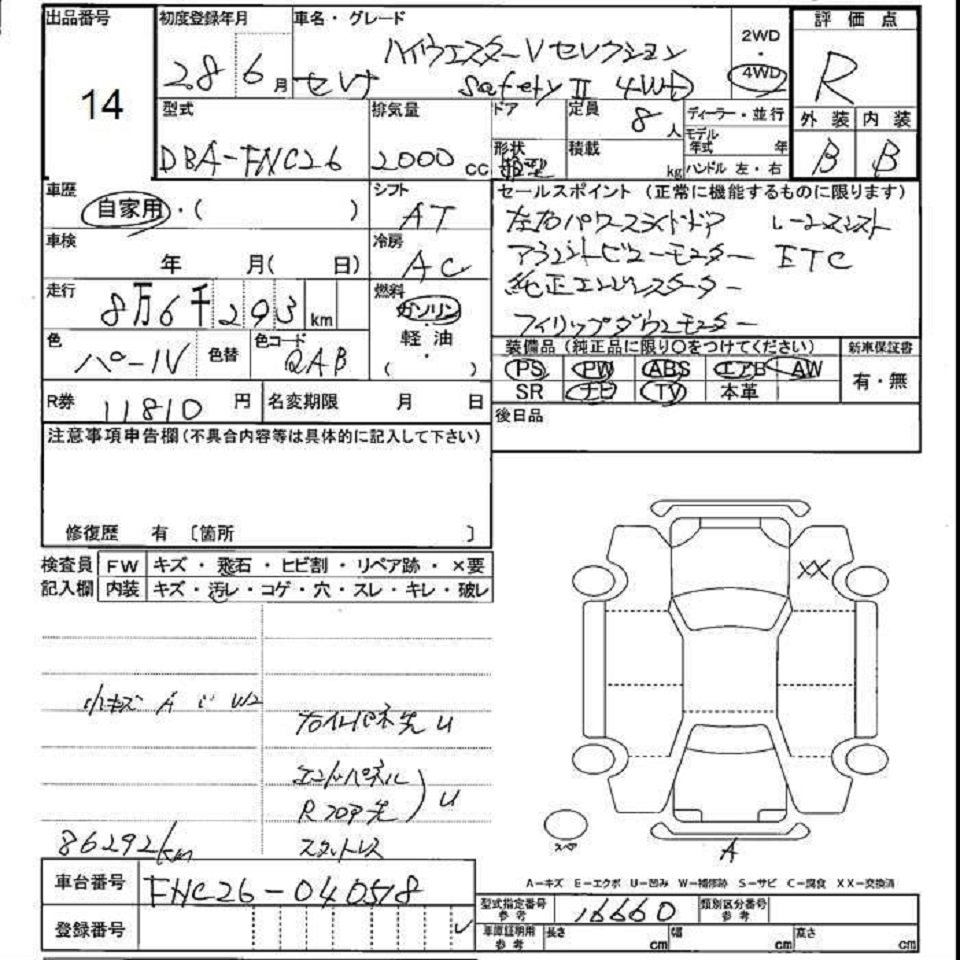 出品番号
14
初度登録年月
28 6月
車名・グレード
ハイウェスターVセレクション
セレナ Safety II 4WD
2WD
・
4WD
評価点
R
外装 内装
B B
型式
DBA-FNC26
排気量
2000cc
ドア
形状
箱型
定員
8人
積載
kg
ディーラー・並行
モデル年式 年
ハンドル 左・右
車歴
自家用・( )
シフト
AT
車検
年 月( 日)
冷房
AC
走行
8万6千293km
燃料
ガソリン
軽油
・
( )
色
パールV
色替
色コード
QAB
R券 11810円
名変期限 月 日
セールスポイント(正常に機能するものに限ります)
左右パワースライドドア レーンアシスト
アラウンドビューモニター ETC
純正エンジンスターター
フィリップダウンモニター
装備品(純正品に限り○をつけてください)
PS PW ABS エアB AW
SR ナビ TV 本革
新車保証書
有・無
後日品
注意事項申告欄(不具合内容等は具体的に記入して下さい)
修復歴 有 〔箇所 〕
検査員記入欄
FW キズ・飛石・ヒビ割・リペア跡・×要
内装 キズ・汚レ・コゲ・穴・スレ・キレ・破レ
小キズ A U W2
右インパネ先 U
エンドパネル
Rフロア先
U
スタットレス
86292km
XX
スペア
A
A-キズ E-エクボ U-凹み W-補修跡 S-サビ C-腐食 XX-交換済
車台番号 FNC26-040518
登録番号
型式指定番号参考 16660
類別区分番号参考
車庫証明用参考 長さ cm 幅 cm 高さ cm